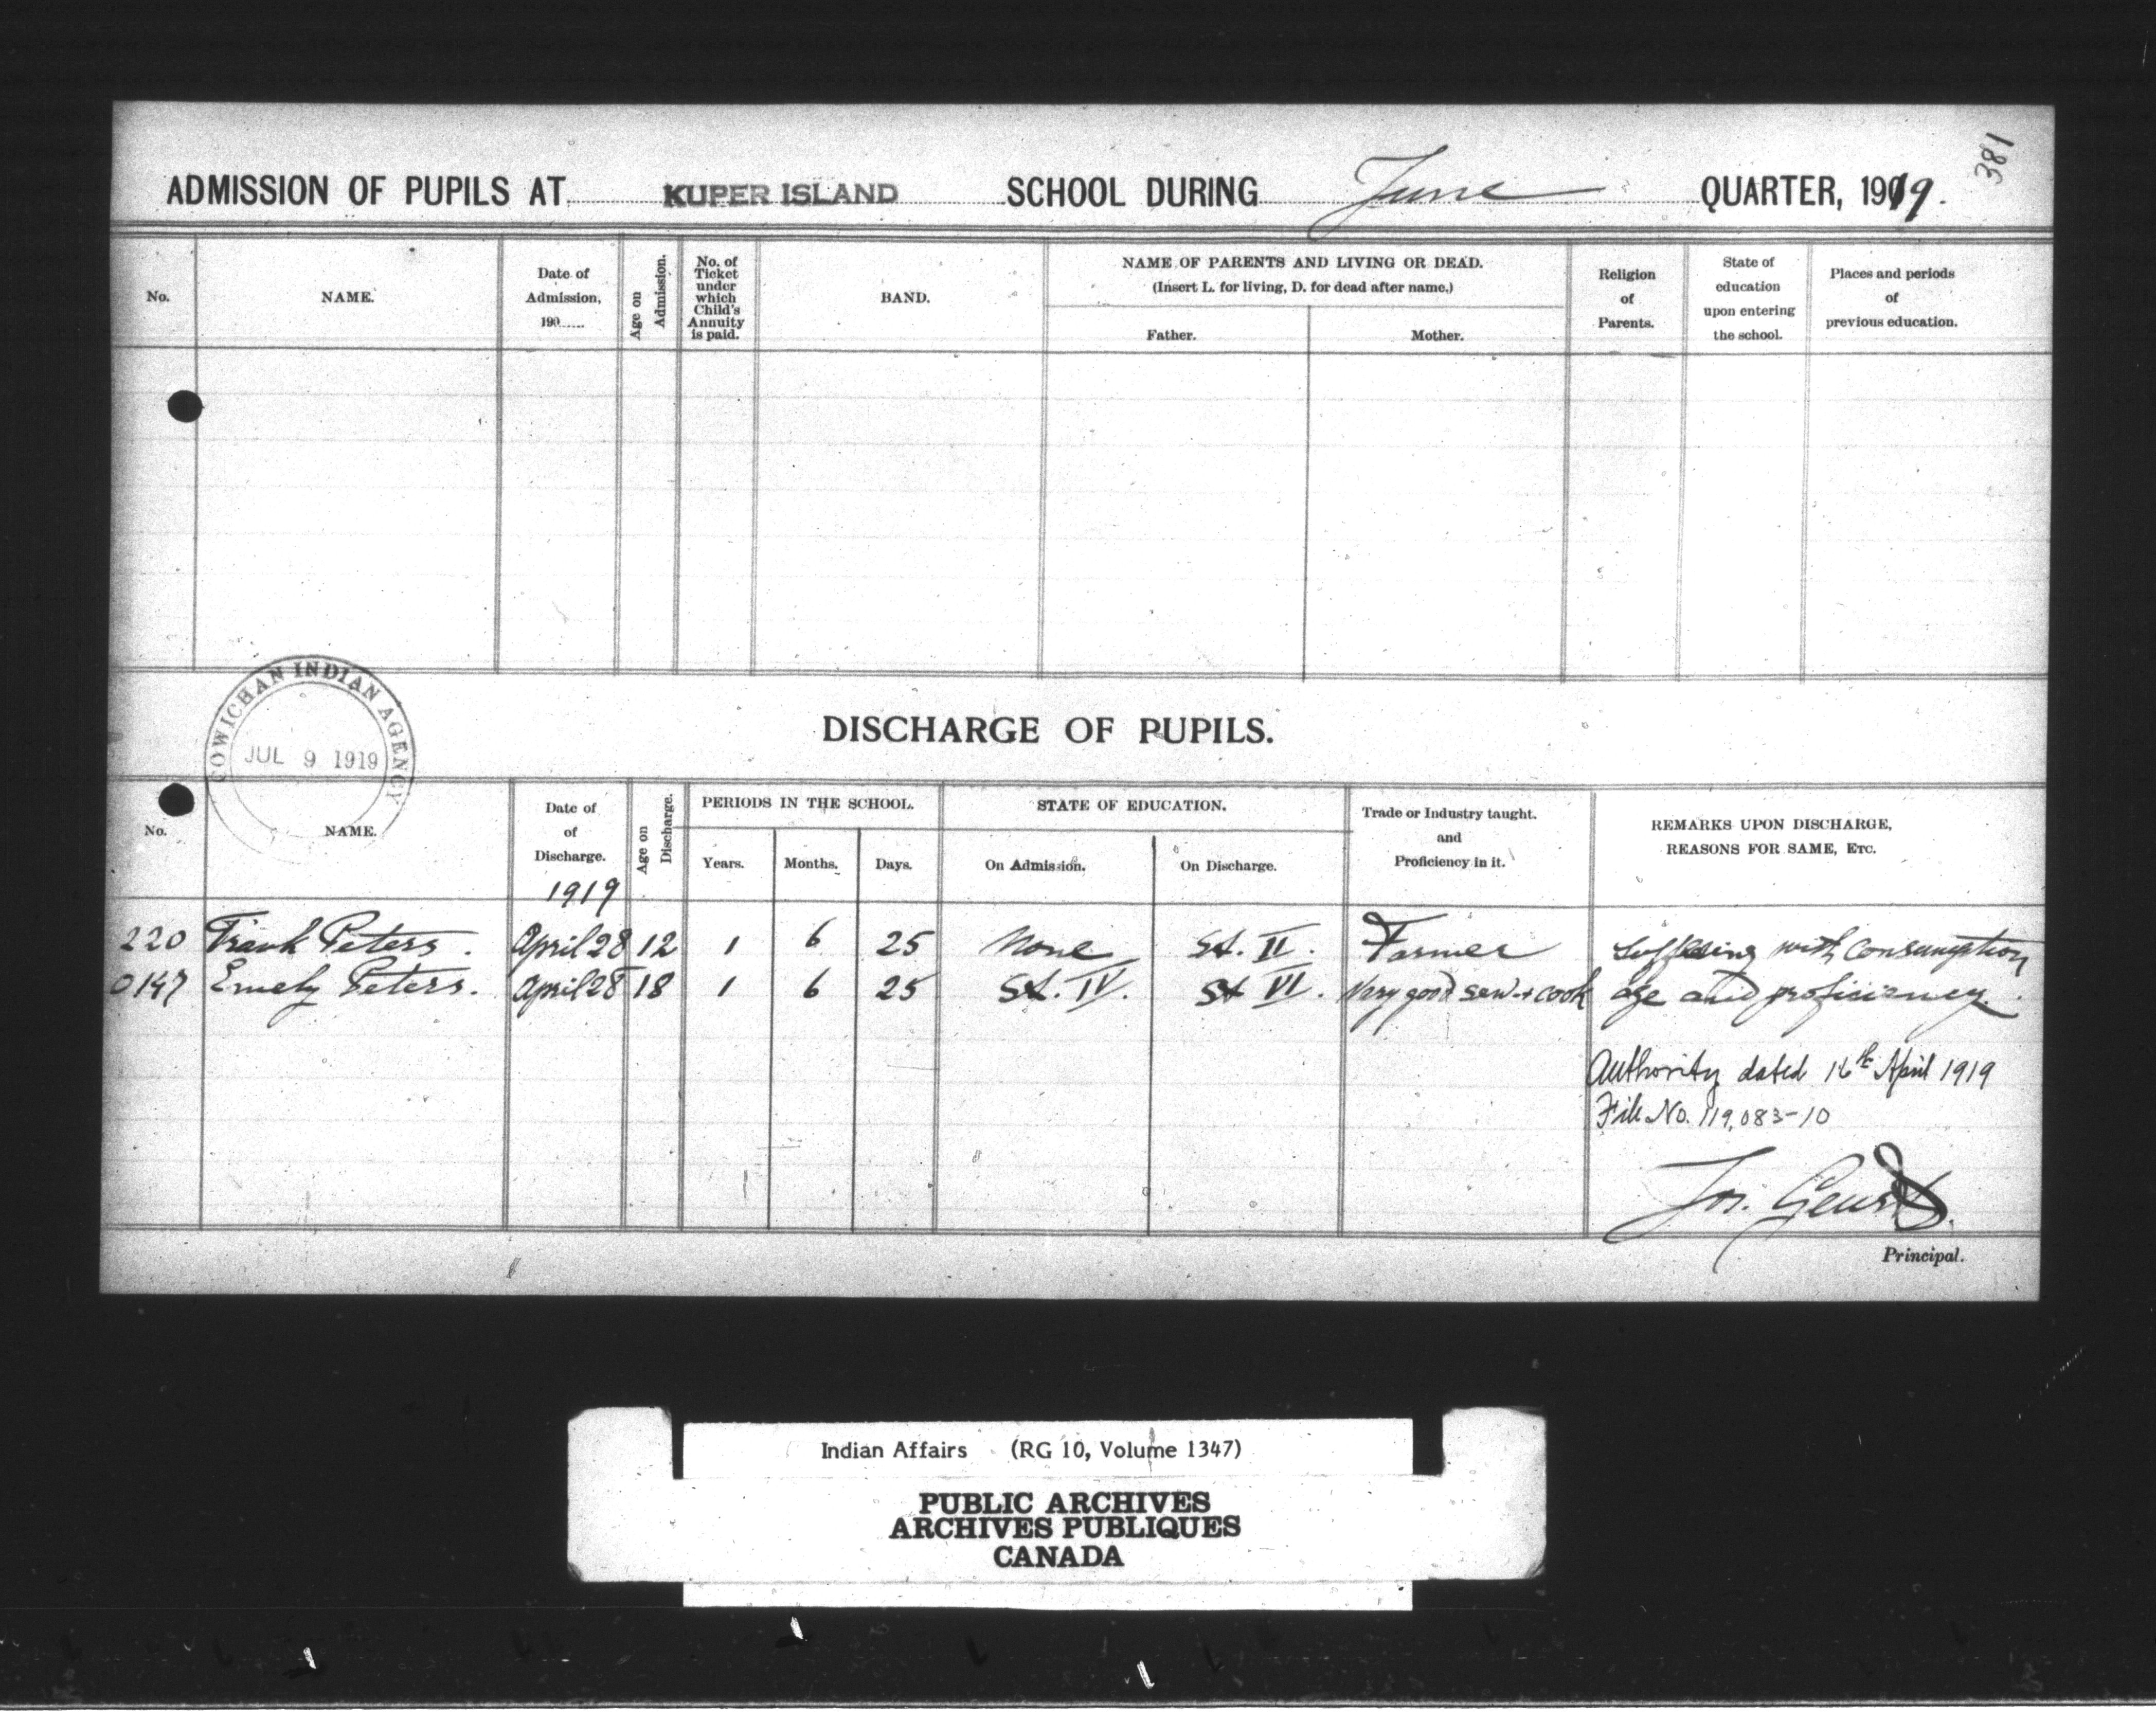 381
ADMISSION OF PUPILS AT KUPER ISLAND SCHOOL DURING June QUARTER, 1919.
No. NAME. Date of Admission, 190...... Age on Admission. No. of Ticket under which Child's Annuity is paid. BAND. NAME OF PARENTS AND LIVING OR DEAD. (Insert L. for living, D. for dead after name.) Father. Mother. Religion of Parents. State of education upon entering the school. Places and periods of previous education.
COWICHAN INDIAN AGENCY
JUL 9 1919
DISCHARGE OF PUPILS.
No. NAME. Date of of Discharge. 1919 Age on Discharge. PERIODS IN THE SCHOOL. Years. Months. Days. STATE OF EDUCATION. On Admission. On Discharge. Trade or Industry taught. and Proficiency in it. REMARKS UPON DISCHARGE, REASONS FOR SAME, ETC.
220 Frank Peters. April 28 12 1 6 25 None St. II. Farmer Suffering with Consumption
0147 Emely Peters. April 28 18 1 6 25 St. IV. St VI. Very good sew + cook age and proficiency.
Authority dated 16th April 1919
File No. 119,083-10
Jos. Geurts.
Principal.
Indian Affairs (RG 10, Volume 1347)
PUBLIC ARCHIVES
ARCHIVES PUBLIQUES
CANADA